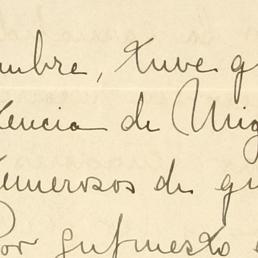 umbre, tuve q
tencia de Mig
temerosos de qu
Por supuesto